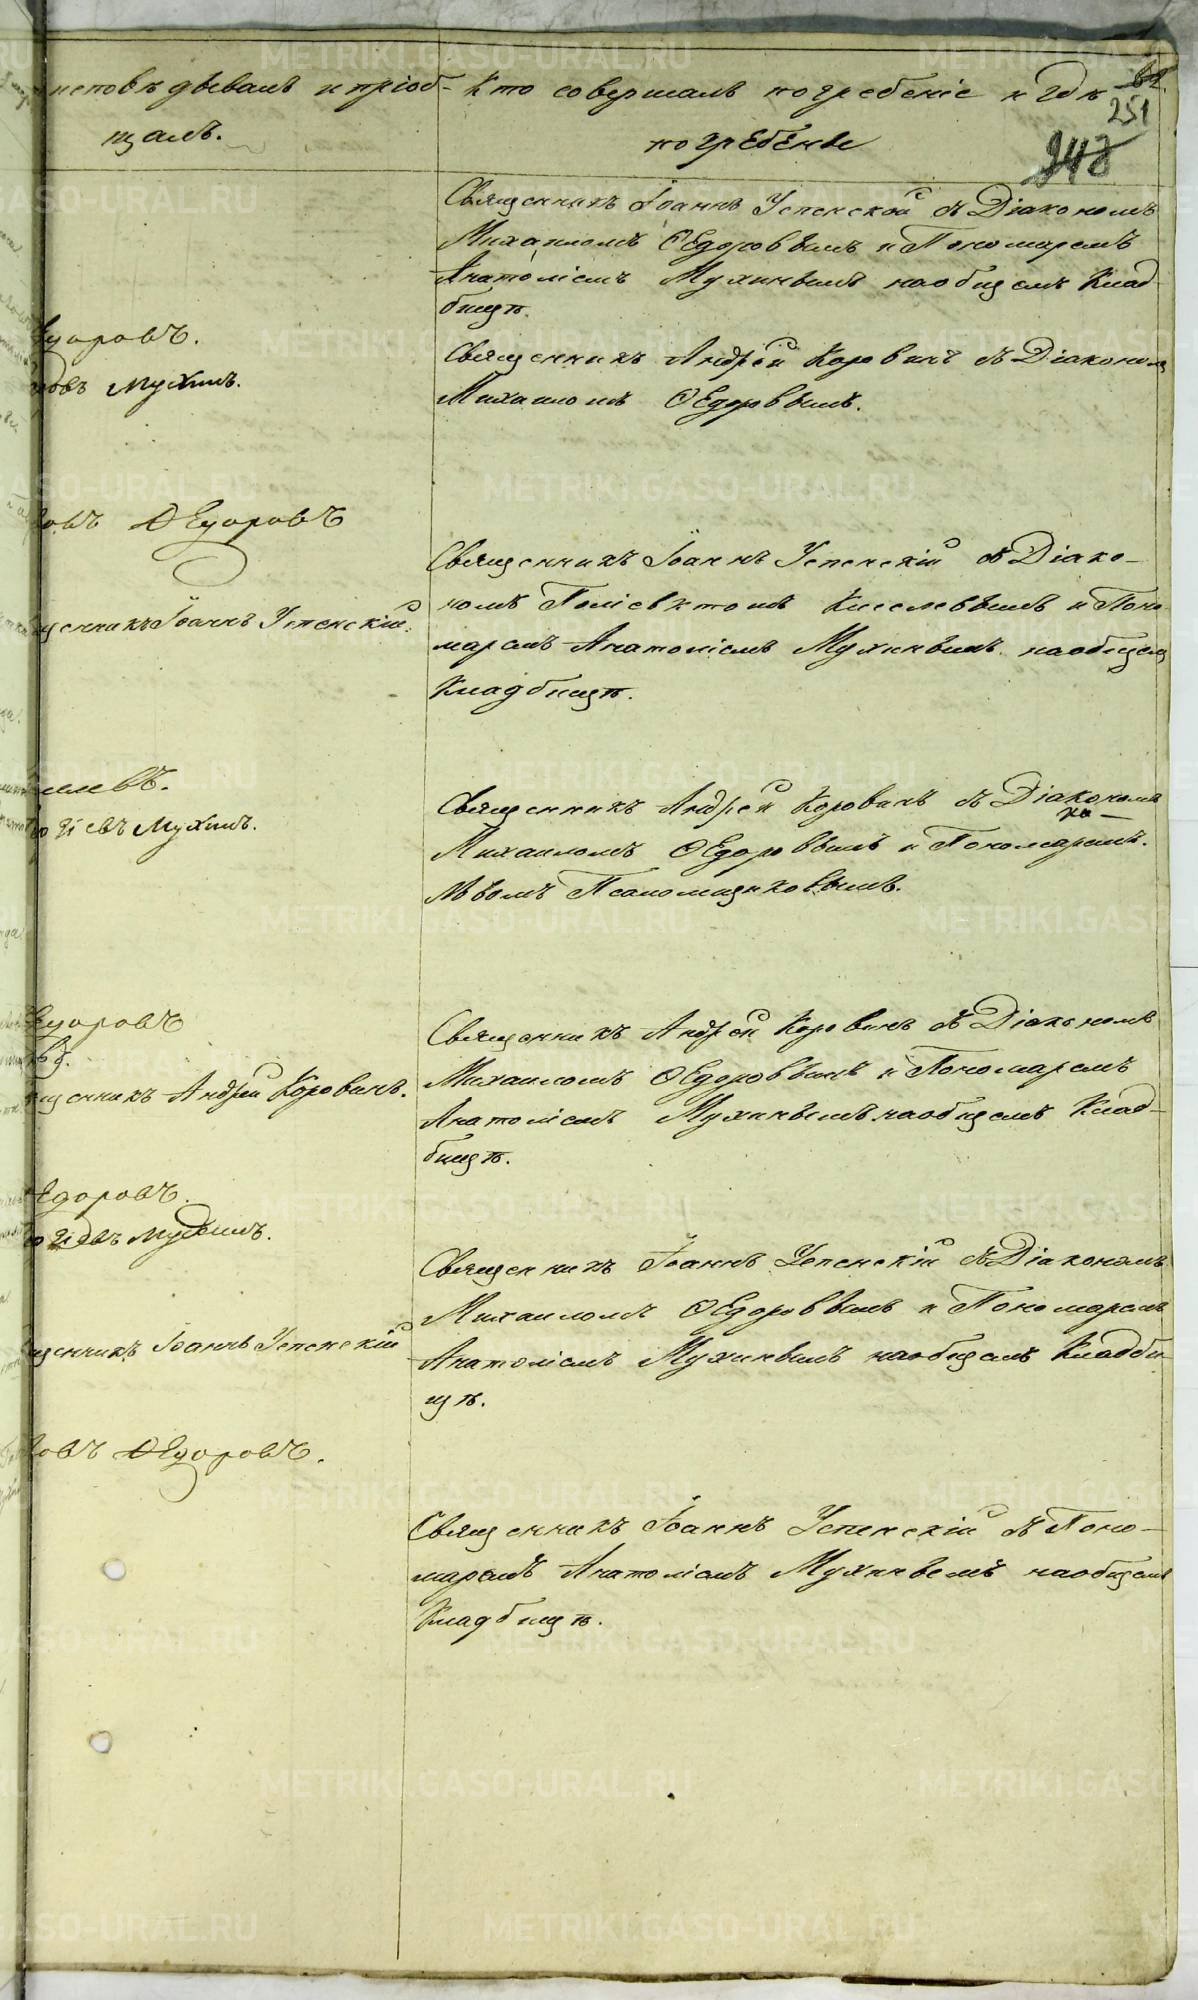 исповѣдывалъ и пріоб-
щалъ.
Кто совершалъ погребеніе и гдѣ
погребены
62.
251
248
Священникъ Іоаннъ Успенской съ Діакономъ
Михаиломъ Ѳедоровымъ и Пономаремъ
Анатоліемъ Мухинымъ на общемъ Клад-
бищѣ.
едоровъ.
Мухинъ.
Священникъ Андрей Коровинъ съ Діакономъ
Михаиломъ Ѳедоровымъ.
овъ Ѳедоровъ
щенникъ Іоаннъ Успенскій.
Священникъ Іоаннъ Успенскій съ Діако-
номъ Поліевктомъ Киселевымъ и Поно-
маремъ Анатоліемъ Мухинымъ на общемъ
Кладбищѣ.
елевъ.
Мухинъ.
Священникъ Андрей Коровинъ съ Діакономъ
Михаиломъ Ѳедоровымъ и Пономаремъ.
Львомъ Псаломщиковымъ.
едоровъ
щенникъ Андрей Коровинъ.
Священникъ Андрей Коровинъ съ Діакономъ
Михаиломъ Ѳедоровымъ и Пономаремъ
Анатоліемъ Мухинымъ на общемъ Клад-
бищѣ.
едоровъ.
Мухинъ.
щенникъ Іоаннъ Успенскій
Священникъ Іоаннъ Успенскій съ Діакономъ
Михаиломъ Ѳедоровымъ и Пономаремъ
Анатоліемъ Мухинымъ на общемъ Кладби-
щѣ.
овъ Ѳедоровъ.
Священникъ Іоаннъ Успенскій съ Поно-
маремъ Анатоліемъ Мухинымъ на общемъ
Кладбищѣ.